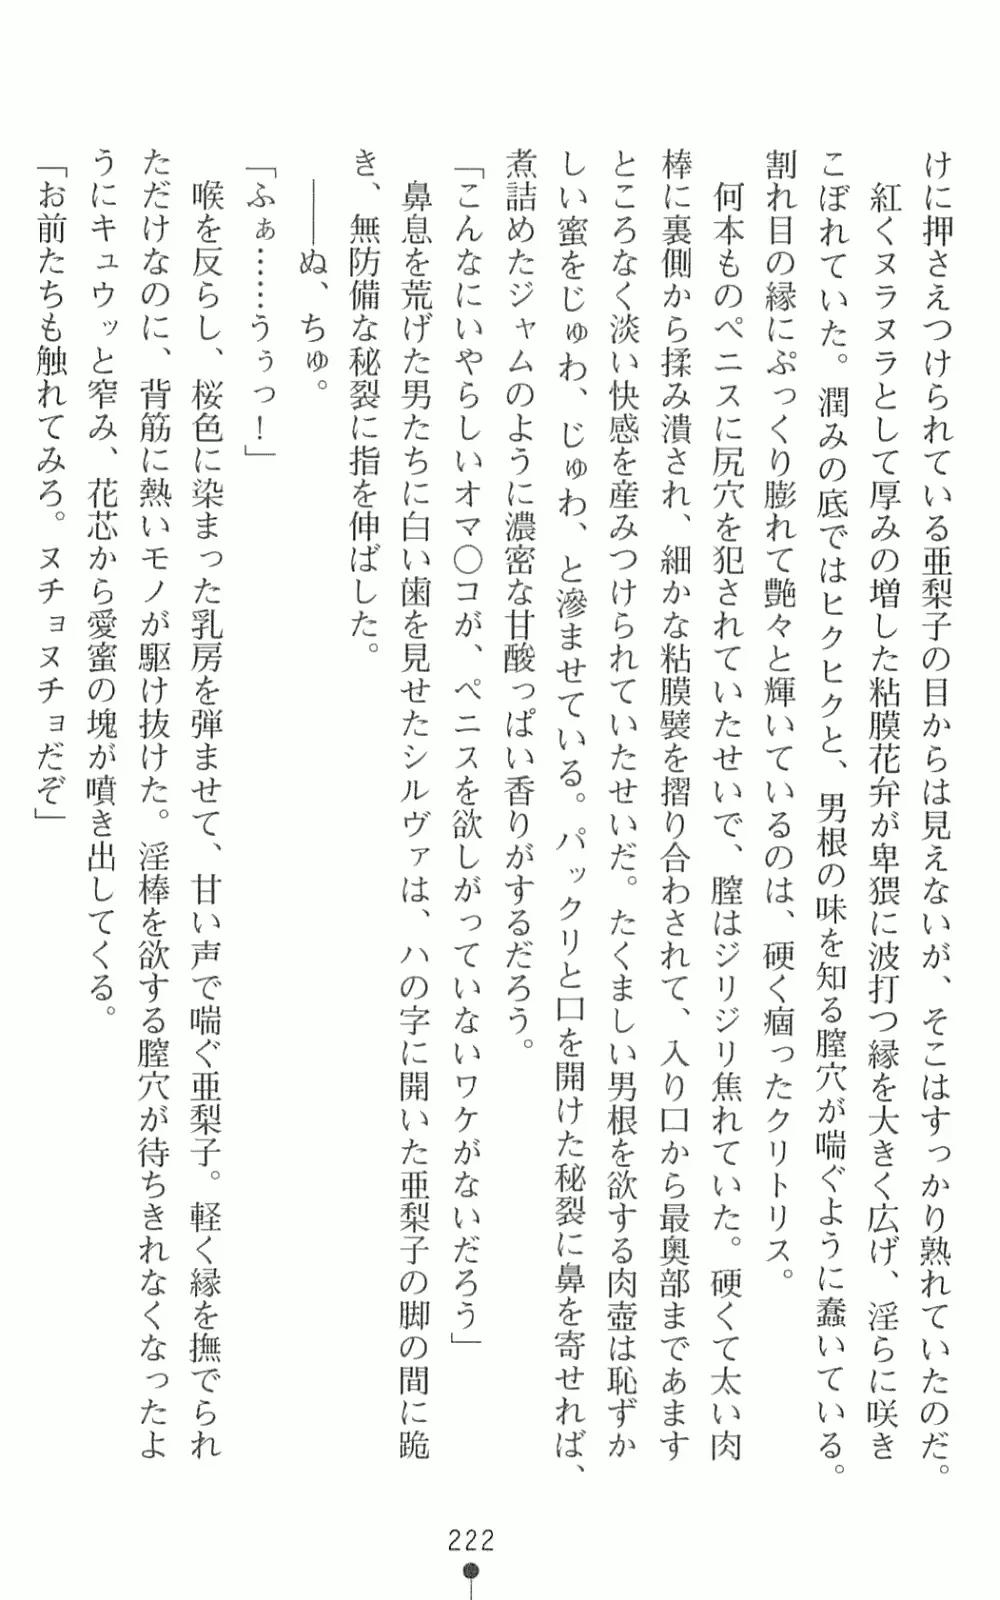 けに押さえつけられている亜梨子の目からは見えないが、そこはすっかり熟れていたのだ。
紅くヌラヌラとして厚みの増した粘膜花弁が卑猥に波打つ縁を大きく広げ、淫らに咲き
こぼれていた。潤みの底ではヒクヒクと、男根の味を知る膣穴が喘ぐように蠢いている。
割れ目の縁にぷっくり膨れて艶々と輝いているのは、硬く痼ったクリトリス。
何本ものペニスに尻穴を犯されていたせいで、膣はジリジリ焦れていた。硬くて太い肉
棒に裏側から揉み潰され、細かな粘膜襞を摺り合わされて、入り口から最奥部まであます
ところなく淡い快感を産みつけられていたせいだ。たくましい男根を欲する肉壺は恥ずか
しい蜜をじゅわ、じゅわ、と滲ませている。パックリと口を開けた秘裂に鼻を寄せれば、
煮詰めたジャムのように濃密な甘酸っぱい香りがするだろう。
「こんなにいやらしいオマ〇コが、ペニスを欲しがっていないワケがないだろう」
鼻息を荒げた男たちに白い歯を見せたシルヴァは、ハの字に開いた亜梨子の脚の間に跪
き、無防備な秘裂に指を伸ばした。
――ぬ、ちゅ。
「ふぁ……うぅっ！」
喉を反らし、桜色に染まった乳房を弾ませて、甘い声で喘ぐ亜梨子。軽く縁を撫でられ
ただけなのに、背筋に熱いモノが駆け抜けた。淫棒を欲する膣穴が待ちきれなくなったよ
うにキュウッと窄み、花芯から愛蜜の塊が噴き出してくる。
「お前たちも触れてみろ。ヌチョヌチョだぞ」
222